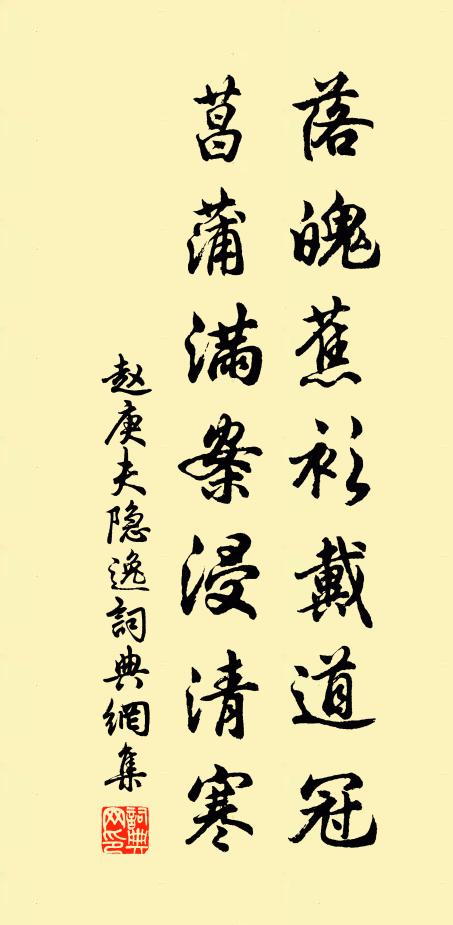 落魄蕉衫戴道冠
菖蒲满案浸清寒
赵庚夫隐逸詞典網集
詞典网印